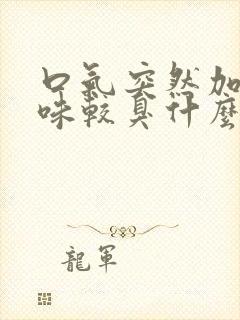 口氣突然加
味較臭什麼
龍軍